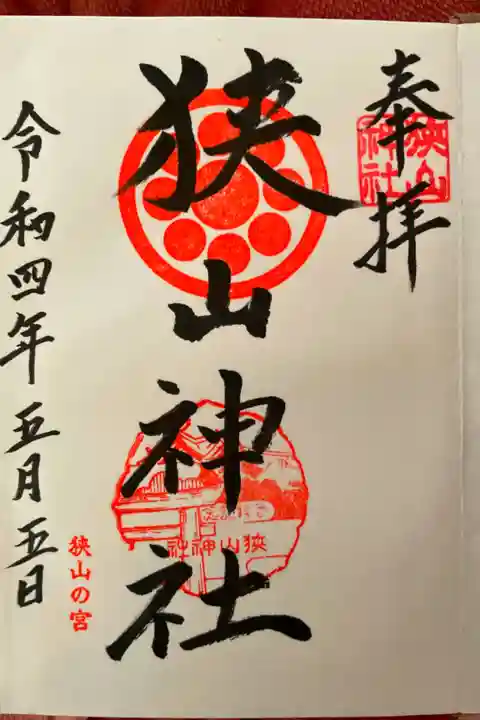 奉拝
狭山神社
狭山神社
狭山神社
令和四年五月五日
狭山の宮